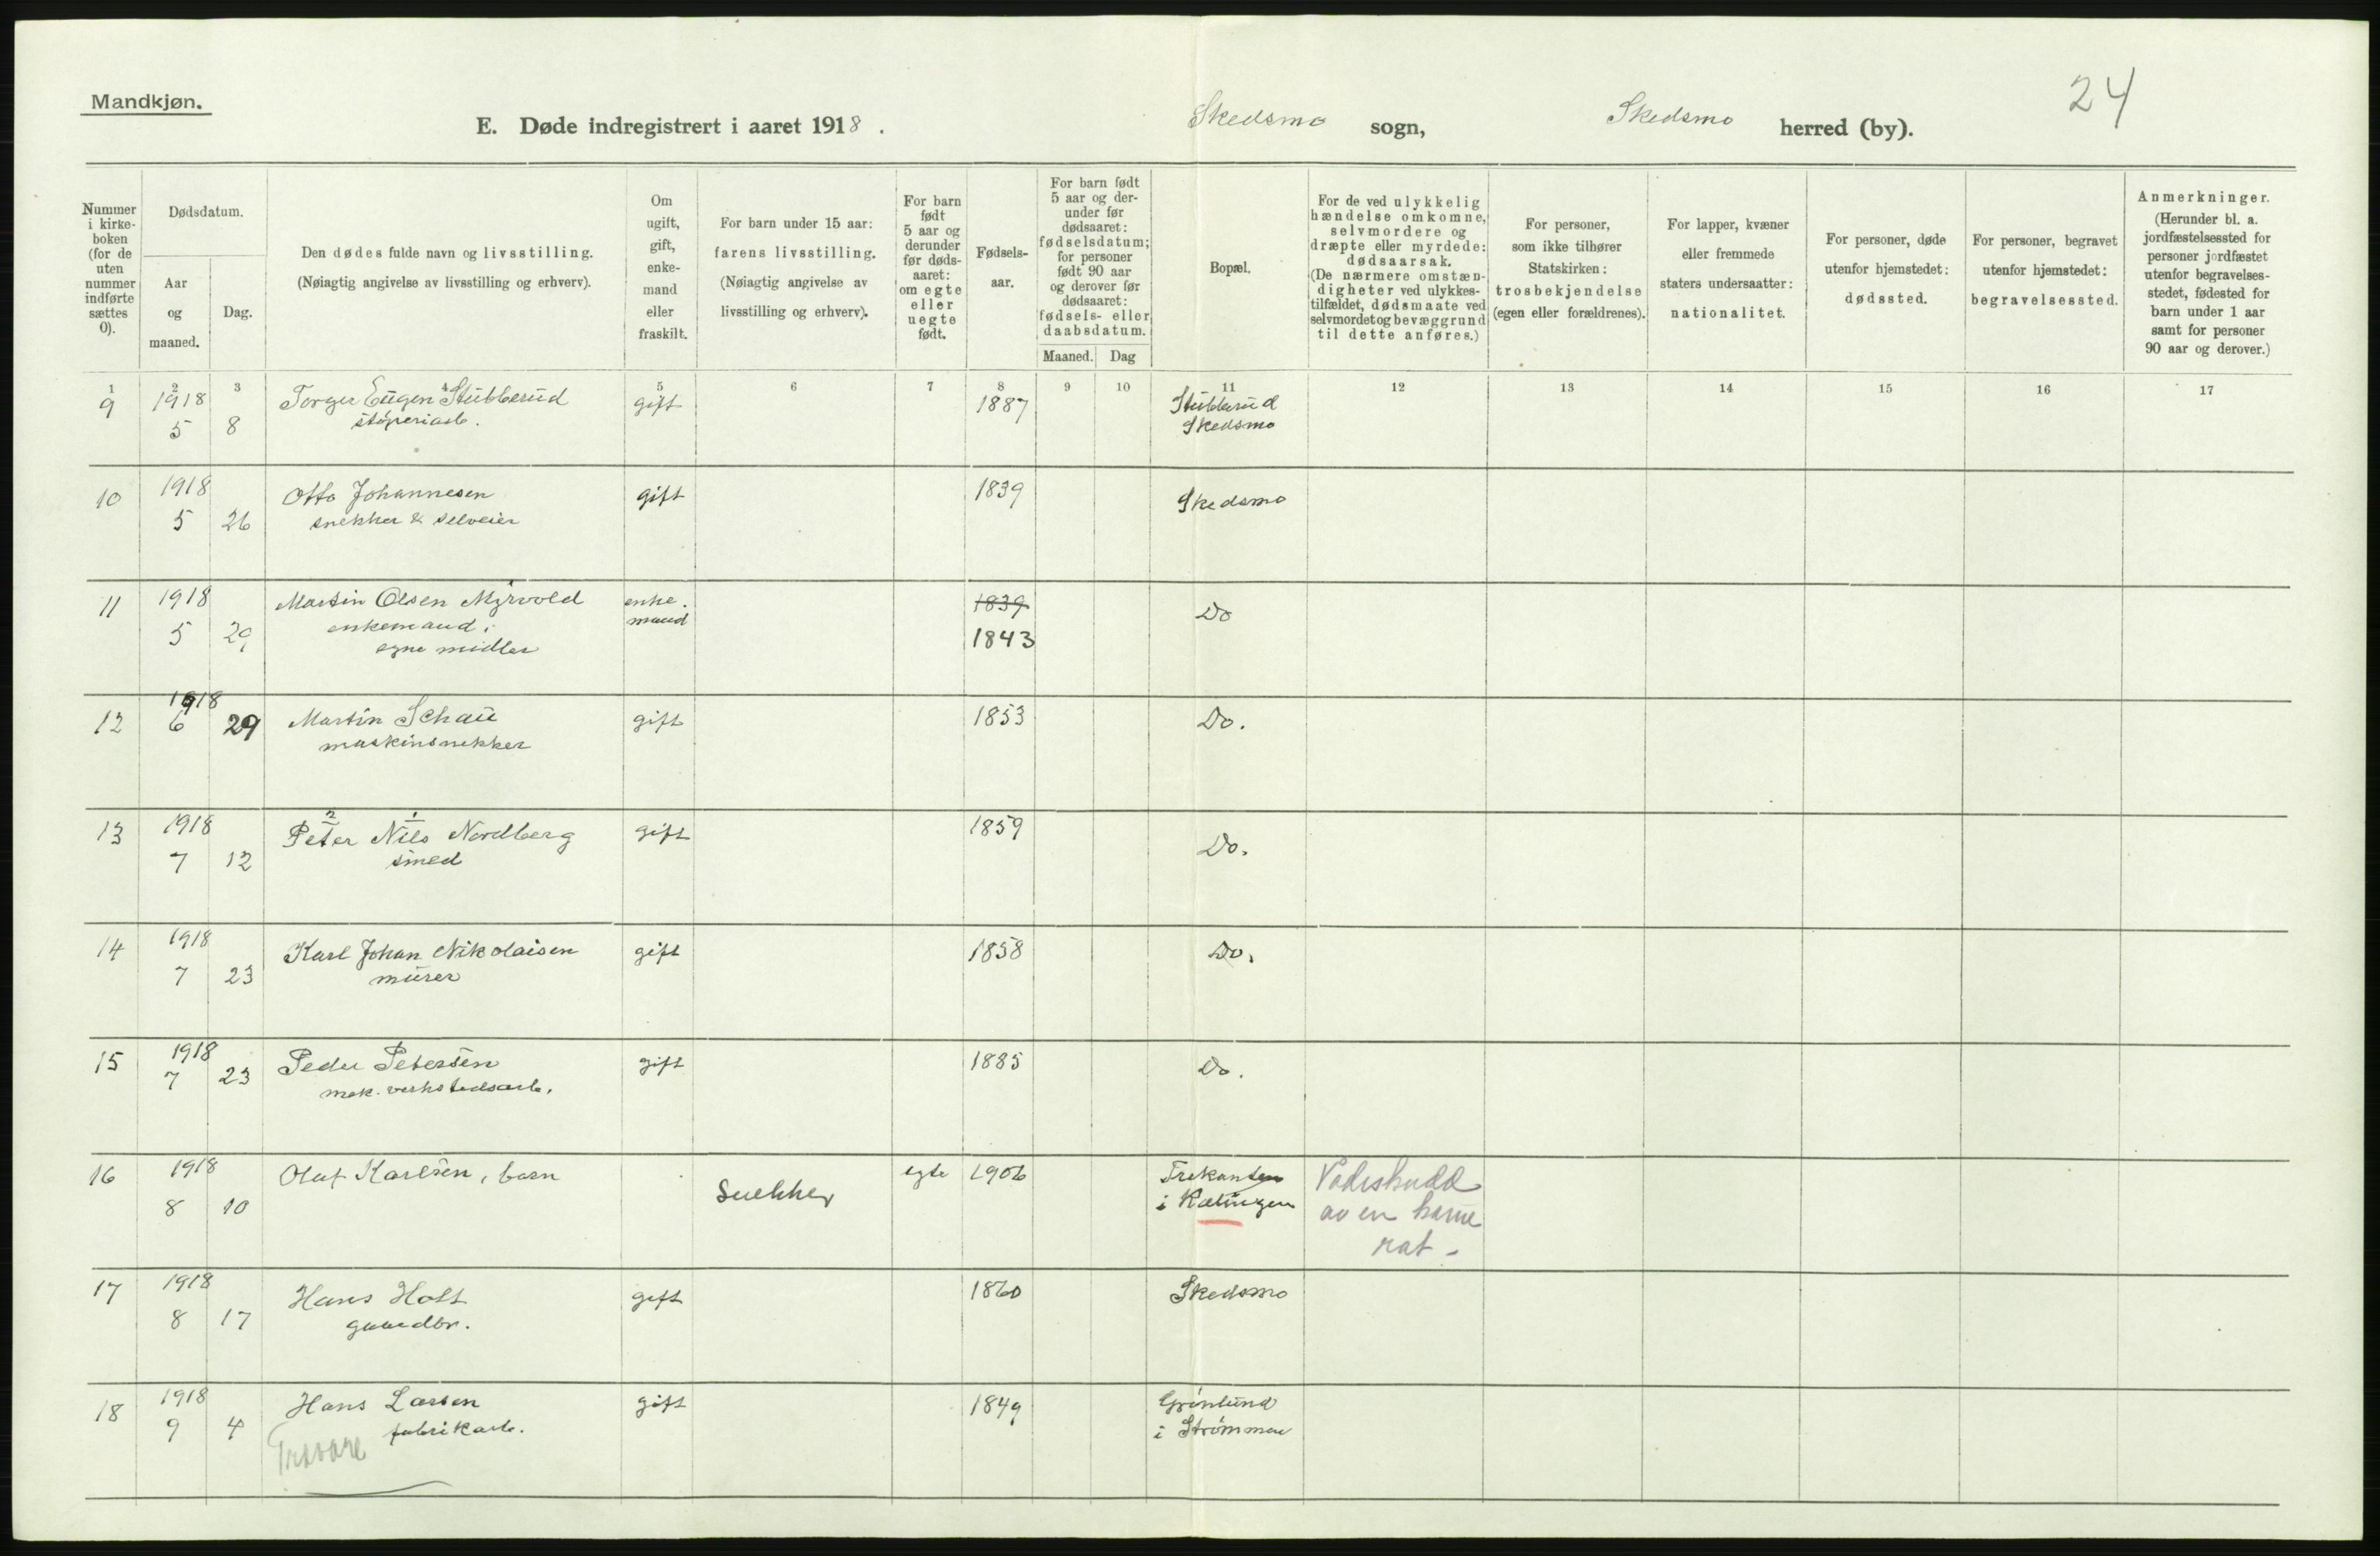 Mandkjøn.
24
E. Døde indregistrert i aaret 1918. Skedsmo sogn, Skedsmo herred (by).
Nummer i kirke-boken (for de uten nummer indførte sættes 0).
Dødsdatum.
Aar og maaned.
Dag.
Den dødes fulde navn og livsstilling.
(Nøiagtig angivelse av livsstilling og erhverv).
Om ugift, gift, enke-mand eller fraskilt.
For barn under 15 aar: farens livsstilling. (Nøiagtig angivelse av livsstilling og erhverv).
For barn født 5 aar og derunder før døds-aaret: om egte eller uegte født.
Fødsels-aar.
For barn født 5 aar og der-under før dødsaaret: fødselsdatum; for personer født 90 aar og derover før dødsaaret: fødsels- eller daabsdatum.
Maaned. Dag
Bopæl.
For de ved ulykkelig hændelse omkomne, selvmordere og dræpte eller myrdede: dødsaarsak. (De nærmere omstæn-digheter ved ulykkes-tilfældet, dødsmaate ved selvmordet og bevæggrund til dette anføres.)
For personer, som ikke tilhører Statskirken: trosbekjendelse (egen eller forældrenes).
For lapper, kvæner eller fremmede staters undersaatter: nationalitet.
For personer, døde utenfor hjemstedet: dødssted.
For personer, begravet utenfor hjemstedet: begravelsessted.
Anmerkninger. (Herunder bl. a. jordfæstelsessted for personer jordfæstet utenfor begravelses-stedet, fødested for barn under 1 aar samt for personer 90 aar og derover.)
1 2 3 4 5 6 7 8 9 10 11 12 13 14 15 16 17
9 1918 Torger Eugen Stubberud gift 1887 Stubberud
5 8 støperiarb. Skedsmo
10 1918 Otto Johannesen gift 1839 Skedsmo
5 26 snekker & selveier
11 1918 Martin Olsen Myrvold enke. 1839 Do
5 29 enkemand; mand 1843
egne midler
12 1918 Martin Schau gift 1853 Do.
6 29 maskinsnekker
2 1
13 1918 Peter Nils Nordberg gift 1859 Do.
7 12 smed
14 1918 Karl Johan Nikolaisen gift 1858 Do.
7 23 murer
15 1918 Peder Petersen gift 1885 Do.
7 23 mek. verkstedsarb.
16 1918 Olaf Karlsen, barn Snekker egte 1906 Trekanten Vadeskudd
8 10 i Kælingen av en kame
rat -
17 1918 Hans Holt gift 1860 Skedsmo
8 17 gaardbr.
18 1918 Hans Larsen gift 1849 Grønlund
9 4 fabrikarb. i Strømmen
Trævare